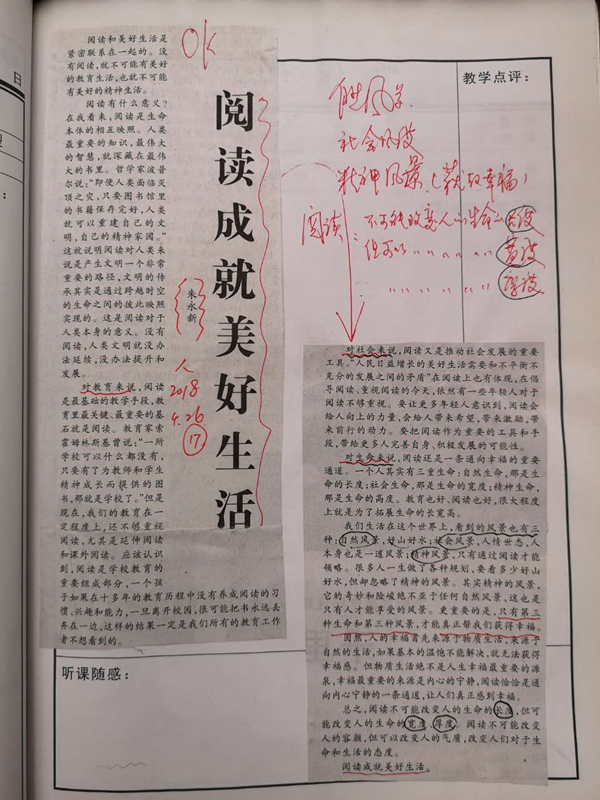 阅读和美好生活是
紧密联系在一起的。没
有阅读,就不可能有美好
的教育生活,也就不可能
有美好的精神生活。
阅读有什么意义?
在我看来,阅读是生命
本体的相互映照。人类
最重要的知识,最伟大
的智慧,就深藏在最伟
大的书里。哲学家波普
尔说:“即便人类面临灭
顶之灾,只要图书馆里
的书籍保存完好,人类
就可以重建自己的文
明,自己的精神家园。”
这就说明阅读对人类来
说是产生文明一个非常
重要的路径,文明的传
承其实是通过跨越时空
的生命之间的彼此映照
实现的。这是阅读对于
人类本身的意义。没有
阅读,人类文明就没办
法延续,没办法提升和
发展。
对教育来说,阅读
是最基础的教学手段,教
育里最关键、最重要的基
石就是阅读。教育家索
霍姆林斯基曾说:“一所
学校可以什么都没有,
只要有了为教师和学生
精神成长而提供的图
书,那就是学校了。”但是
现在,我们的教育在一
定程度上,还不够重视
阅读,尤其是延伸阅读
和课外阅读。应该认识
到,阅读是学校教育的
重要组成部分,一个孩
子如果在十多年的教育历程中没有养成阅读的习
惯、兴趣和能力,一旦离开校园,很可能把书永远丢
弃在一边,这样的结果一定是我们所有的教育工作
者不想看到的。
OK
阅读成就美好生活
朱永新
人
2018
4.26
17
日
教学点评:
自然风景
社会风景
精神风景(获取幸福)
阅读
不可能改变人的生命的长度
但可以〃〃〃〃宽度
〃〃〃〃厚度
对社会来说,阅读又是推动社会发展的重要
工具。“人民日益增长的美好生活需要和不平衡不
充分的发展之间的矛盾”在阅读上也有体现,在倡
导阅读、重视阅读的今天,依然有一些年轻人对于
阅读不够重视。要让更多年轻人意识到,阅读会
给人向上的力量,会给人带来希望,带来激励,带
来前行的动力。要把阅读作为重要的工具和手
段,带给更多人完善自身、积极发展的可能性。
对生命来说,阅读还是一条通向幸福的重要
通道。一个人其实有三重生命:自然生命,那是生
命的长度;社会生命,那是生命的宽度;精神生命,
那是生命的高度。教育也好、阅读也好,很大程度
上就是为了拓展生命的长宽高。
我们生活在这个世界上,看到的风景也有三
种:自然风景,好山好水;社会风景,人情世态,人
本身也是一道风景;精神风景,只有通过阅读才能
领略。很多人一生做了各种规划,要看多少好山
好水,但却忽略了精神的风景。其实精神的风景,
它的奇妙和险峻绝不亚于任何自然风景,这也是
只有人才能享受的风景。更重要的是,只有第三
种生命和第三种风景,才能真正帮我们获得幸福。
固然,人的幸福首先来源于物质生活,来源于
自然的生活,如果基本的温饱不能解决,就无法获得
幸福感。但物质生活绝不是人生幸福最重要的源
泉,幸福最重要的来源是内心的宁静,阅读恰恰是通
向内心宁静的一条通道,让人们真正感到幸福。
总之,阅读不可能改变人的生命的长度,但可
能改变人的生命的宽度、厚度。阅读不可能改变
人的容颜,但可以改变人的气质,改变人们对于生
命和生活的态度。
阅读成就美好生活。
听课随感: